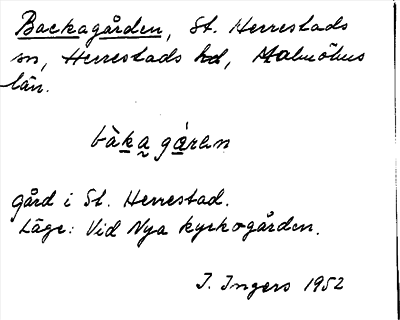 Backagården, St. Herrestads
sn, Herrestads hd, Malmöhus
län.
bàka gáran
gård i St. Herrestad.
Läge: Vid Nya kyrkogården.
I. Ingers 1952